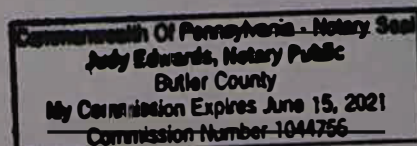 Commonwealth Of Pennsylvania - Notary Seal
Judy Edwards, Notary Public
Butler County
My Commission Expires June 15, 2021
Commission Number 1044756